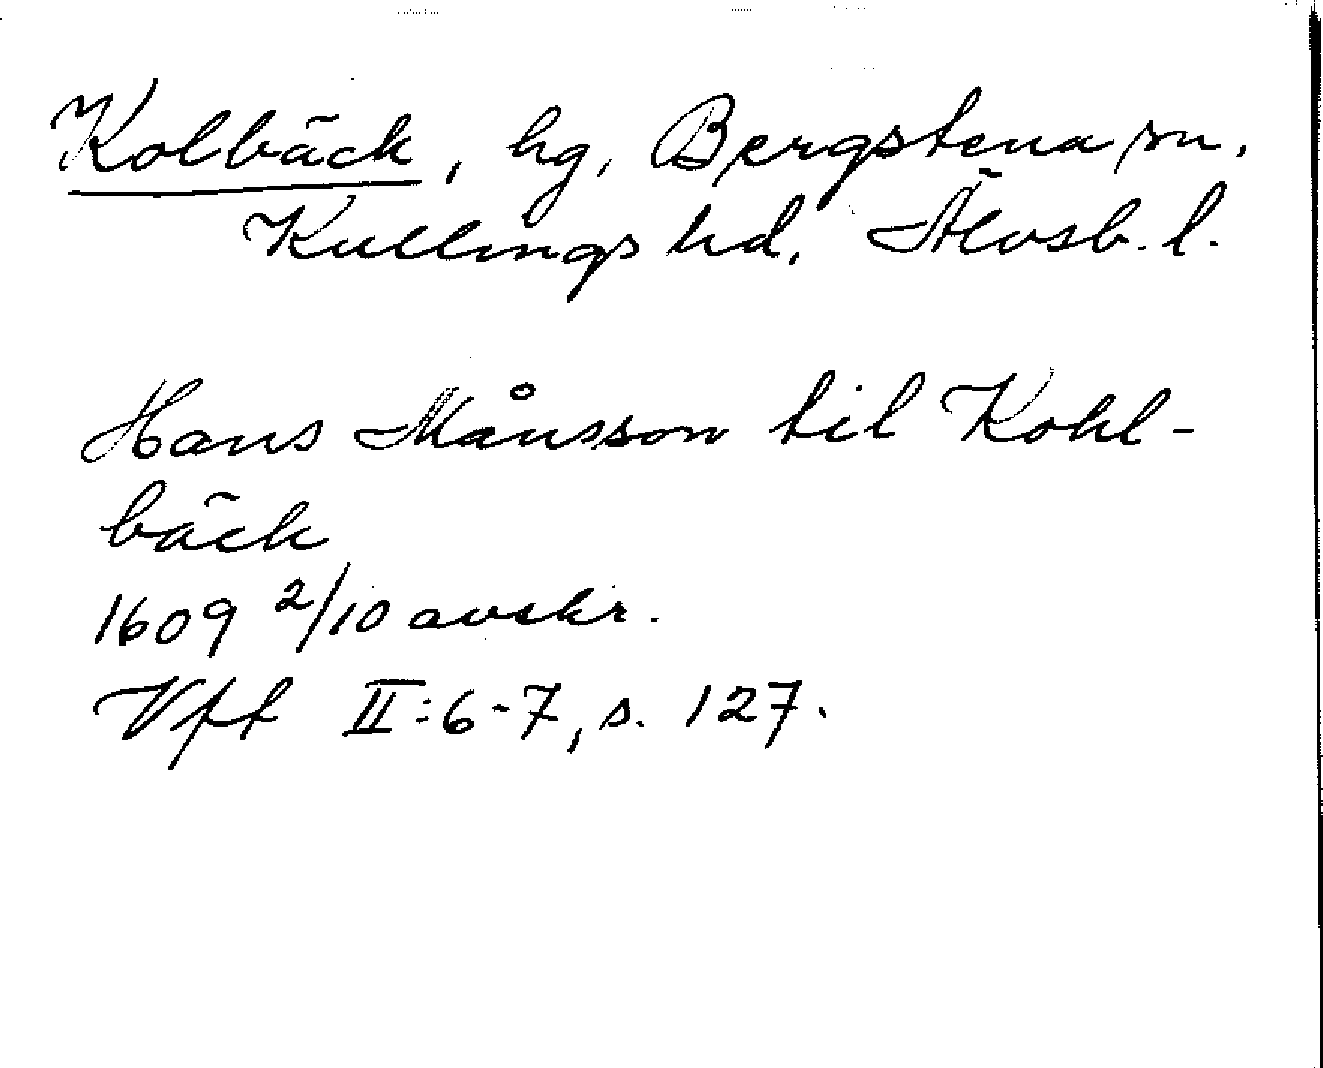 Kolbäck, hg, Bergstena sn,
Kullings hd, Älvsb. l.
Hans Månsson til Kohl-
bäck
1609 2/10 avskr.
Vft II:6-7, s. 127.